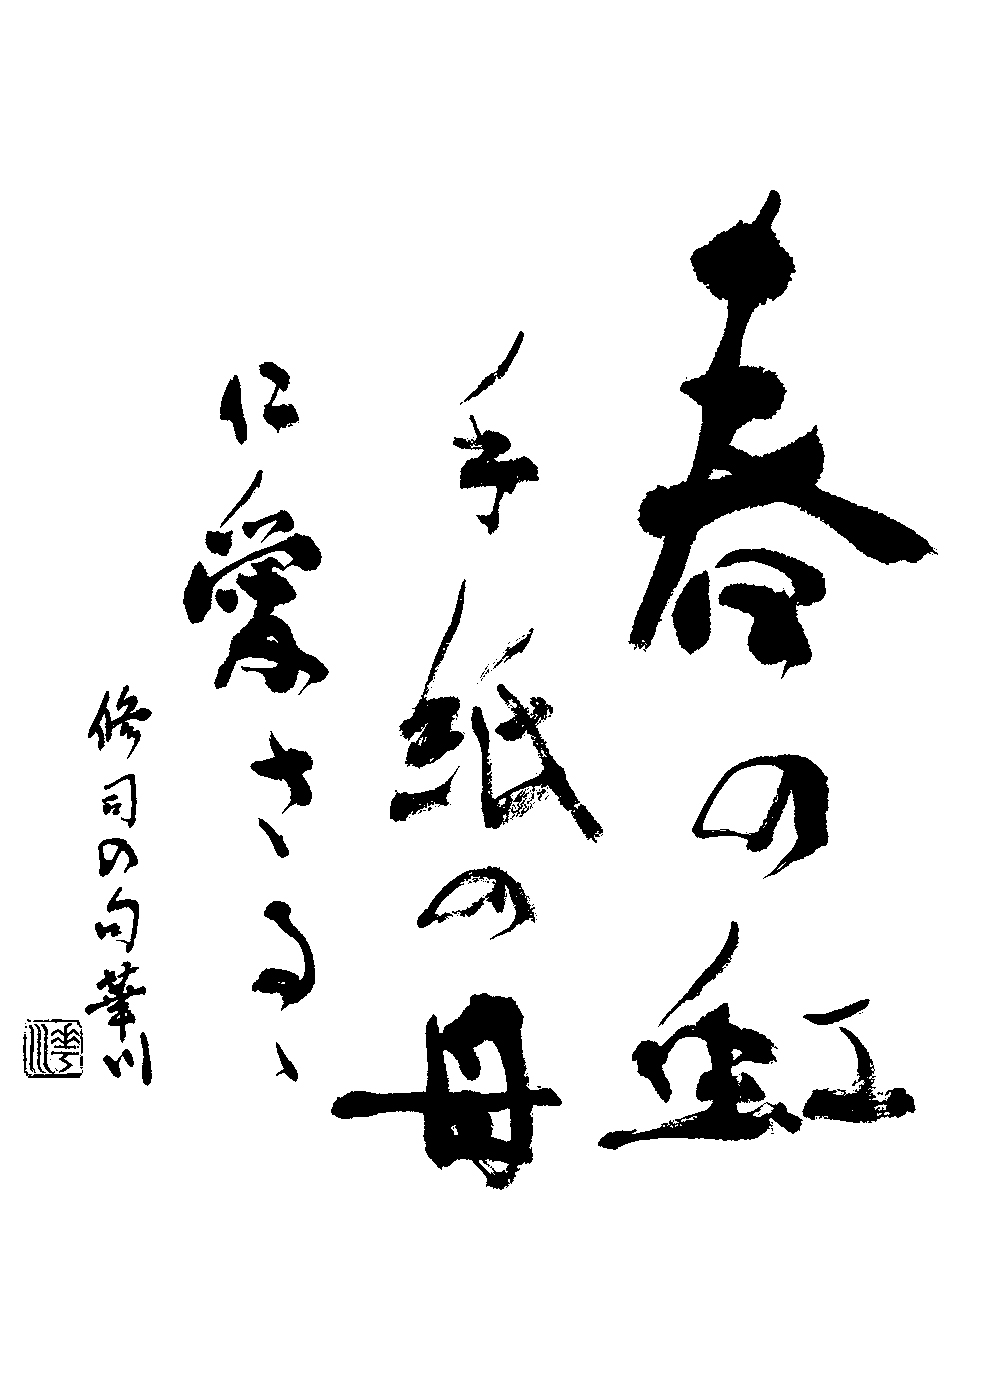 春の虹
手紙の母
に愛さるゝ
修司の句 華川
華川